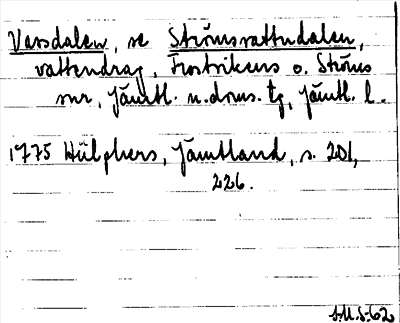 Vasdalen, se Strömsvattudalen,
vattendrag, Frostvikens o. Ströms
snr, Jämtl. n. doms. tg, Jämtl. l.
1775 Hülphers, Jämtland, s. 201,
226.
S.M.S-62